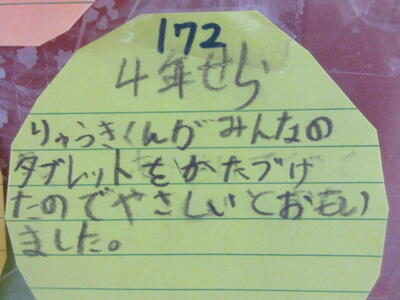 172
4年せら
りゅうきくんがみんなの
タブレットをかたづけ
たのでやさしいとおもい
ました。